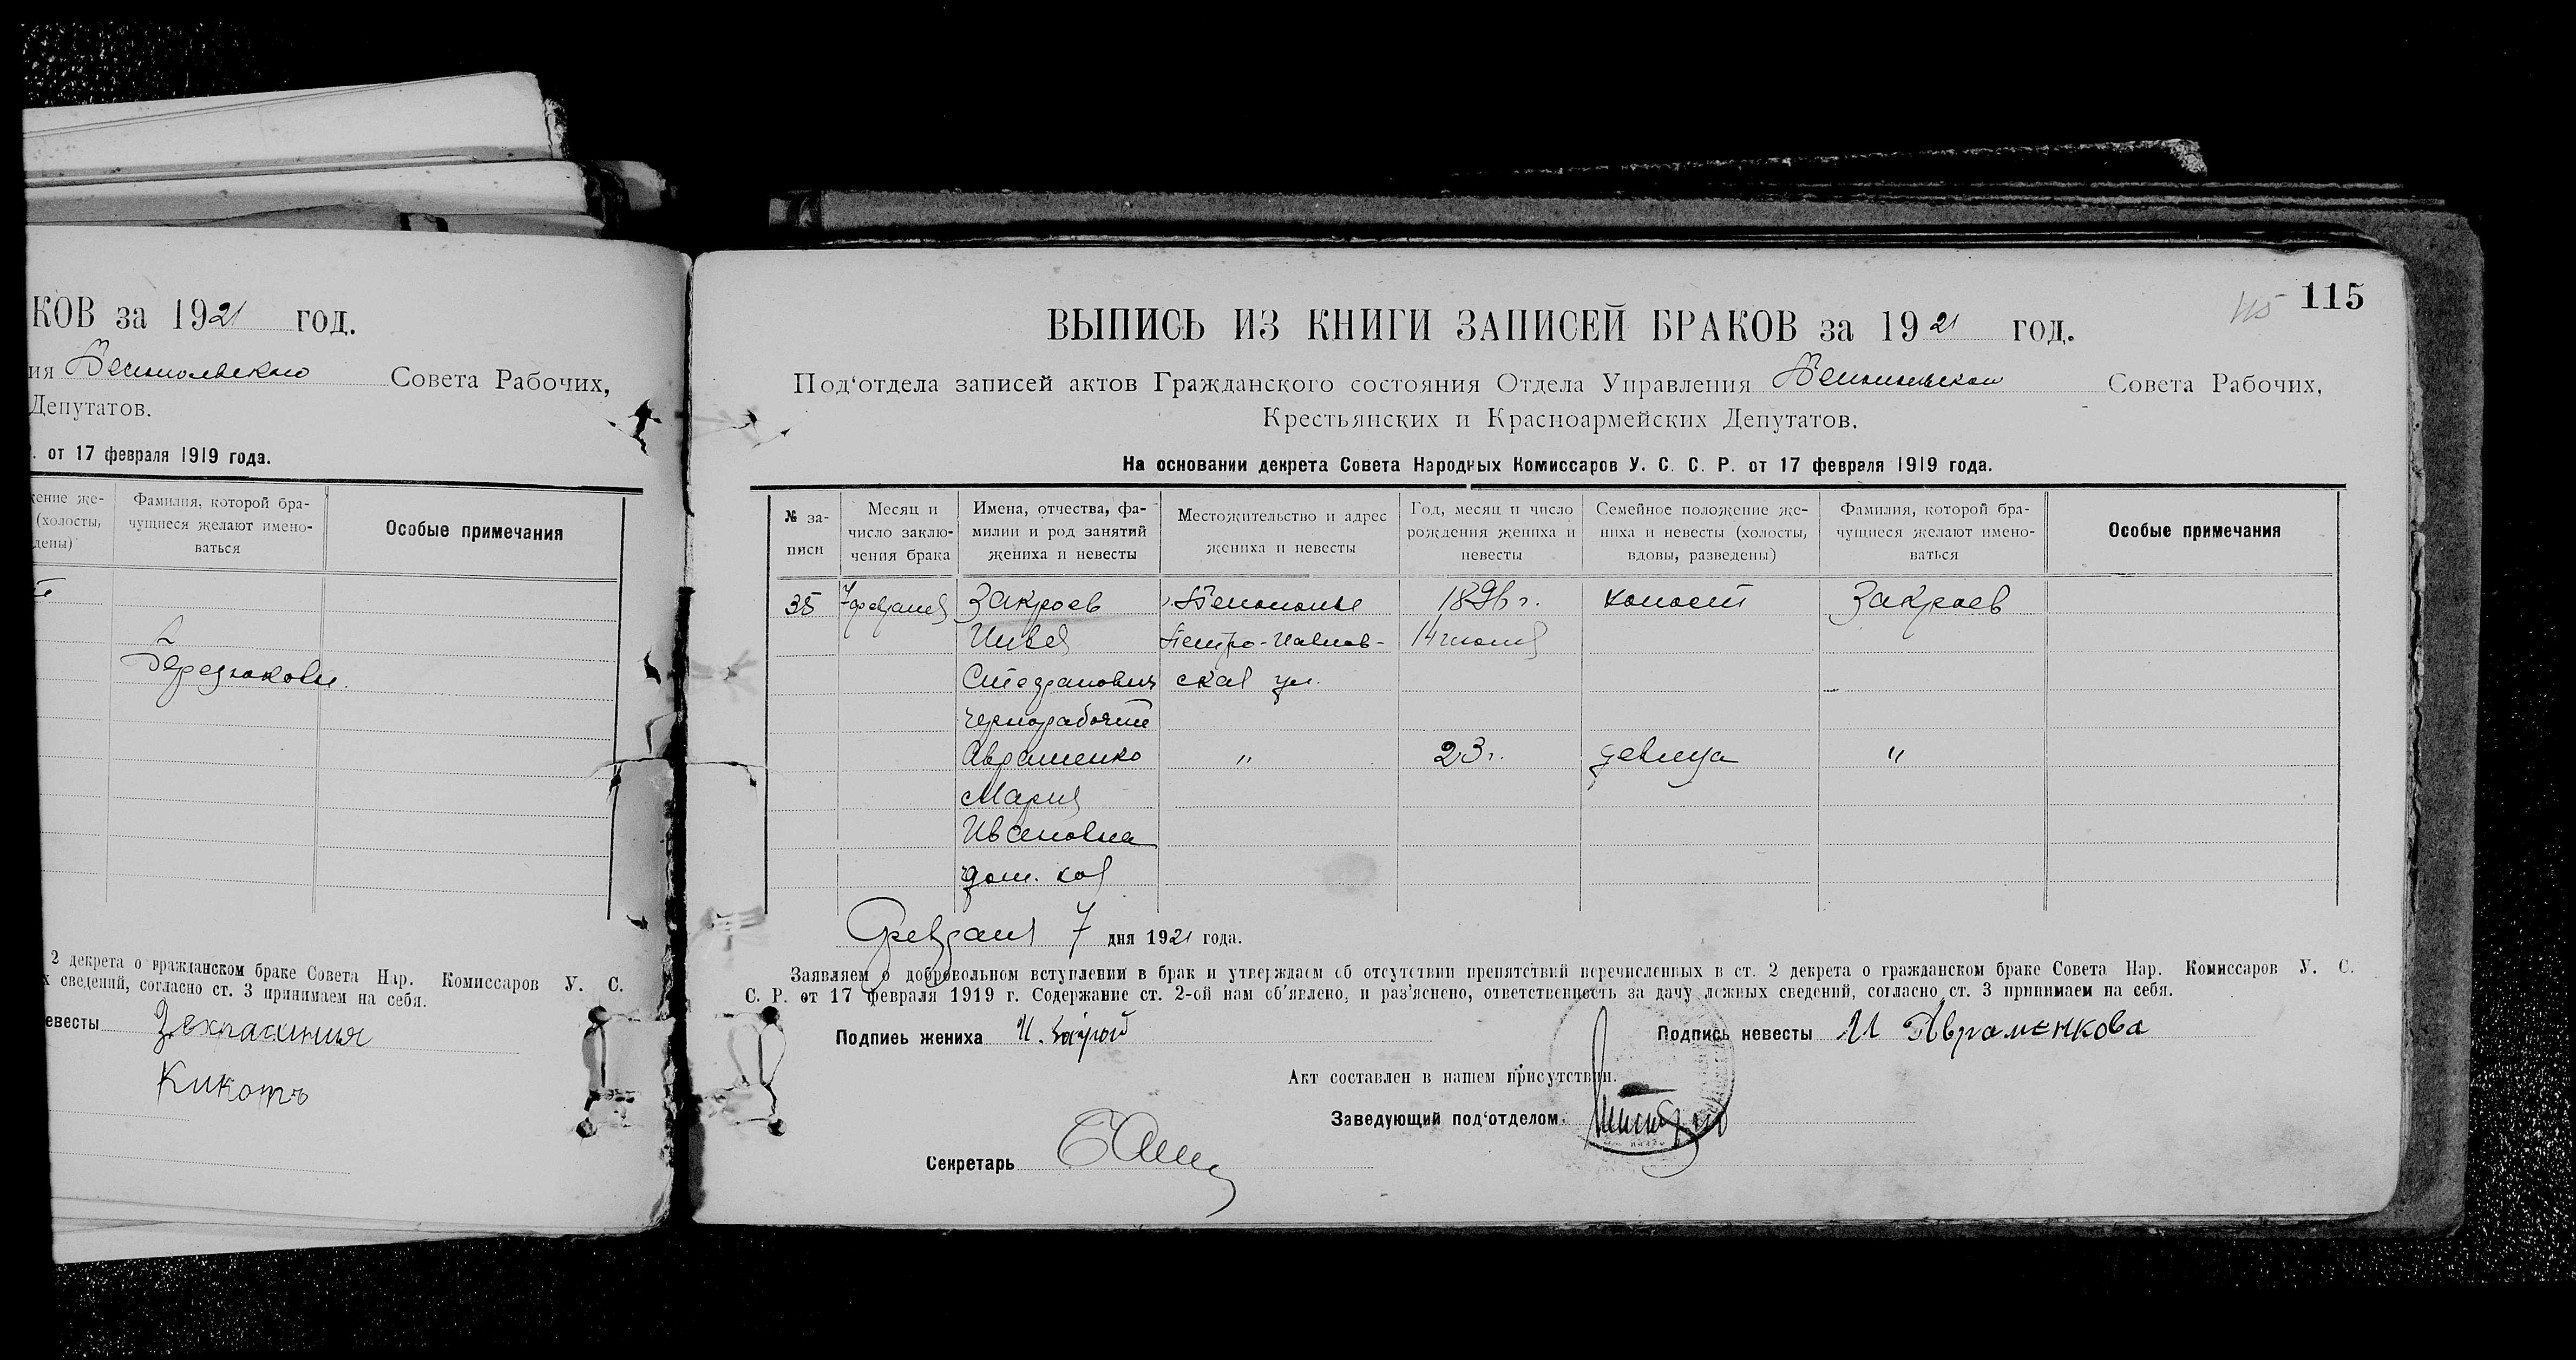 КОВ за 1921 год.
ия Белопольского Совета Рабочих,
Депутатов.
. от 17 февраля 1919 года.
жение же-
(холосты,
дены)
Фамилия, которой бра-
чущиеся желают имено-
ваться
Особые примечания
Березюковы.
2 декрета о гражданском браке Совета Нар. Комиссаров У. С.
х сведений, согласно ст. 3 принимаем на себя.
евесты
Кикоть
115
115
ВЫПИСЬ ИЗ КНИГИ ЗАПИСЕЙ БРАКОВ за 1921 год.
Под‘отдела записей актов Гражданского состояния Отдела Управления Белопольского Совета Рабочих,
Крестьянских и Красноармейских Депутатов.
На основании декрета Совета Народных Комиссаров У. С. С. Р. от 17 февраля 1919 года.
№ за-
писи
Месяц и
число заклю-
чения брака
Имена, отчества, фа-
милии и род занятий
жениха и невесты
Местожительство и адрес
жениха и невесты
Год, месяц и число
рождения жениха и
невесты
Семейное положение же-
ниха и невесты (холосты,
вдовы, разведены)
Фамилия, которой бра-
чущиеся желают имено-
ваться
Особые примечания
35 7 февраля Закроев Белополье 1896 г. холост Закроев
Петро-Павлов- 14 июля
Стефанович ская ул.
чернорабочий
Авраменко " 23 г. девица "
Мария
Ивановна
дом. хоз
Февраля 7 дня 1921 года.
Заявляем о добровольном вступлении в брак и утверждаем об отсутствии препятствий перечисленных в ст. 2 декрета о гражданском браке Совета Нар. Комиссаров У. С.
С. Р. от 17 февраля 1919 г. Содержание ст. 2-ой нам об‘явлено, и раз‘яснено, ответственность за дачу ложных сведений, согласно ст. 3 принимаем на себя.
Подпись жениха И.
Подпись невесты М Авраменкова
Акт составлен в нашем присутствии.
Заведующий под‘отделом
Секретарь